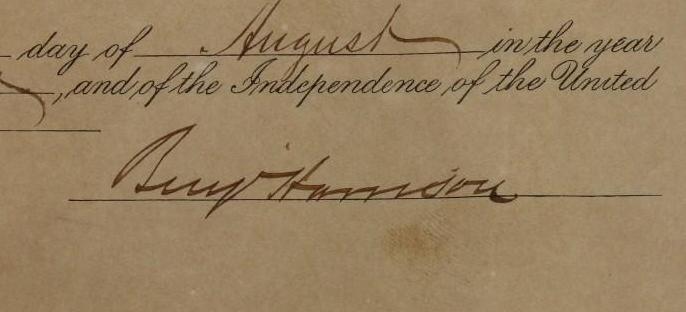 day of August in the year
, and of the Independence of the United
Benj Harrison